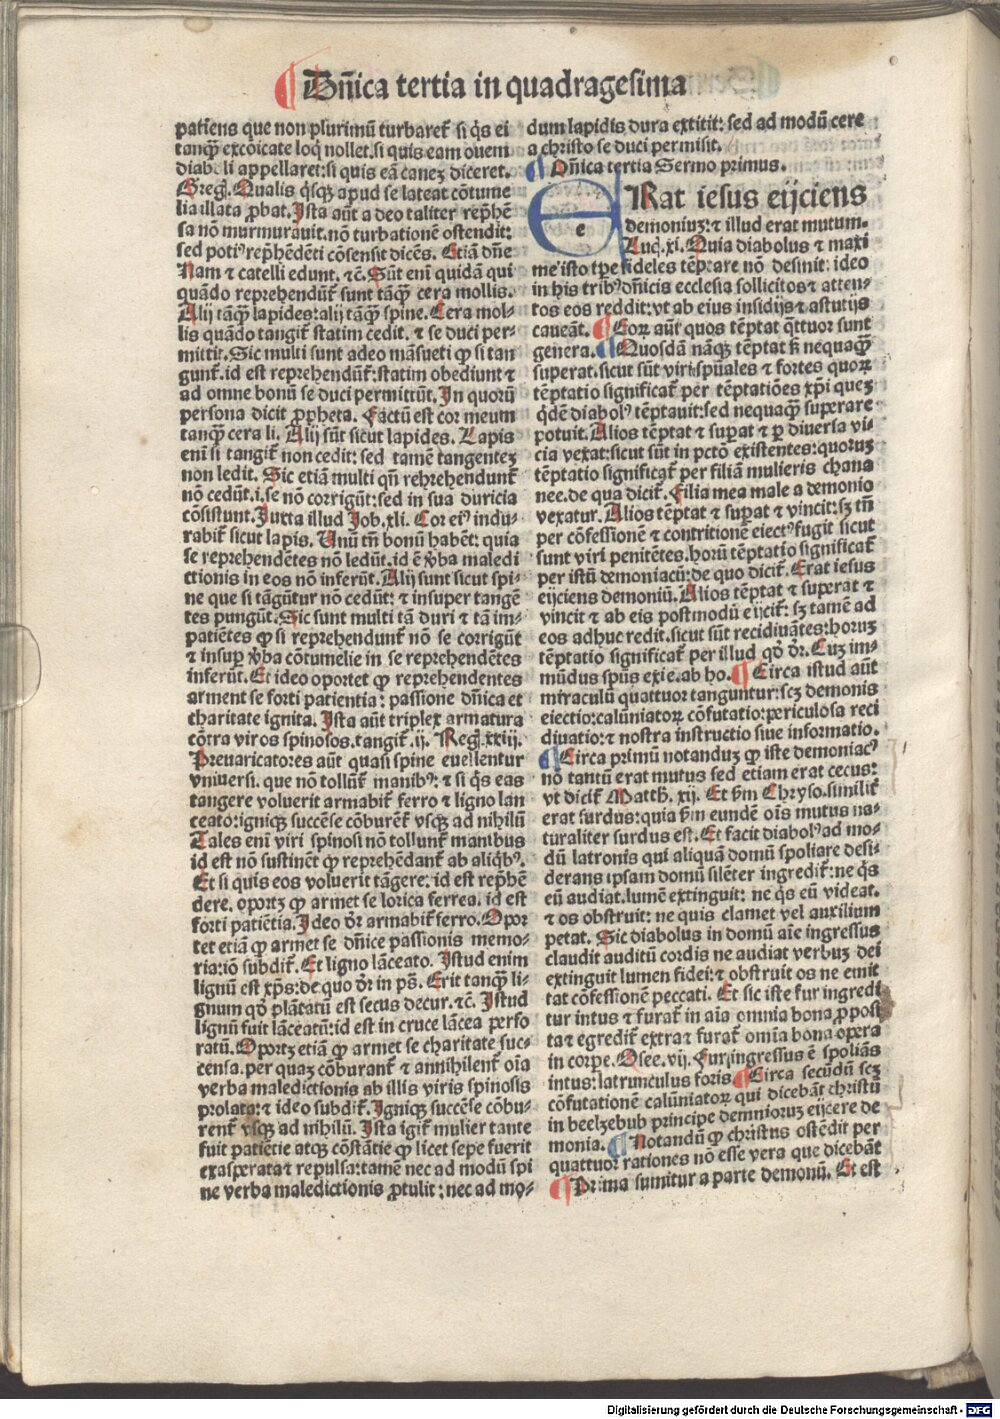 Dñica tertia in quadragesima
patiens que non plurimũ turbaret᷑ si q̃s ei
tanq̃ʒ excõicate loq̃ nollet.si quis eam ouem
diaboli appellaret:si quis eã canez diceret.
Greg̃. Qualis q̃sqʒ apud se lateat cõtume
lia illata ꝓbat. Ista aũt a deo taliter rep̃hẽ
sa nõ murmurauit.nõ turbationẽ ostendit:
sed potiꝰ rep̃hẽdẽti cõsensit dicẽs. Etiã dñe
Nam ⁊ catelli edunt. ⁊c̃. Sũt enĩ quidã qui
quãdo reprehendũt᷑ sunt tãq̃ʒ cera mollis.
Alij tãq̃ʒ lapides:alij tãq̃ʒ spine. Cera mol-
lis quãdo tangit᷑ statim cedit. ⁊ se duci per-
mittit. Sic multi sunt adeo mãsueti ꝙ si tan
gunt᷑.id est reprehendũt᷑:statim obediunt ⁊
ad omne bonũ se duci permittũt. In quorũ
persona dicit ꝓpheta. Factũ est cor meum
tanq̃ʒ cera li. Alij sũt sicut lapides. Lapis
enĩ si tangit᷑ non cedit: sed tamẽ tangentez
non ledit. Sic etiã multi qñ rehrehendunt᷑
nõ cedũt.i.se nõ corrigũt:sed in sua duricia
cõsistunt. Juxta illud Job.xli. Cor eiꝰ indu-
rabit᷑ sicut lapis. Unũ tñ bonũ habẽt: quia
se reprehendẽtes nõ ledũt.id ẽ v̾ba maledi
ctionis in eos nõ inferũt. Alij sunt sicut spi-
ne que si tãgũtur nõ cedũt: ⁊ insuper tangẽ
tes pungũt. Sic sunt multi tã duri ⁊ tã im-
patiẽtes ꝙ si reprehendunt᷑ nõ se corrigũt
⁊ insuꝑ v̾ba cõtumelie in se reprehendẽtes
inferũt. Et ideo oportet ꝙ reprehendentes
arment se forti patientia: passione dñica et
charitate ignita. Ista aũt triplex armatura
cõtra viros spinosos.tangit᷑.ij. Reg̃.xxiij.
Preuaricatores aũt quasi spine euellentur
vniuersi. que nõ tollũt᷑ manibꝰ: ⁊ si q̃s eas
tangere voluerit armabit᷑ ferro ⁊ ligno lan
ceato:igniqʒ succẽse cõburẽt᷑ vsqʒ ad nihilũ
Tales enĩ viri spinosi nõ tollunt᷑ manibus
id est nõ sustinẽt ꝙ reprehẽdant᷑ ab aliqb̾ꝰ.
Et si quis eos voluerit tãgere. id est rep̃hẽ
dere. oportʒ ꝙ armet se lorica ferrea. id est
forti patiẽtia. Ideo d̃r armabit᷑ ferro. Opor
tet etiã ꝙ armet se dñice passionis memo-
ria:iõ subdit᷑. Et ligno lãceato. Istud enim
lignũ est xp̃s:de quo d̃r in ps̃. Erit tanq̃ʒ li-
gnum qd̾ plãtatũ est secus decur. ⁊c̃. Istud
lignũ fuit lãceatũ:id est in cruce lãcea perfo
ratũ. Oportʒ etiã ꝙ armet se charitate suc-
censa.per quaʒ cõburant᷑ ⁊ annihilent᷑ oĩa
verba maledictionis ab illis viris spinosis
prolata:⁊ ideo subdit᷑. Igniqʒ succẽse cõbu-
rent᷑ vsqʒ ad nihilũ. Ista igit᷑ mulier tante
fuit patiẽtie atqʒ cõstãtie ꝙ licet sepe fuerit
exasperata ⁊ repulsa:tamẽ nec ad modũ spi
ne verba maledictionis ꝓtulit: nec ad mo-
dum lapidis dura extitit: sed ad modũ cere
a christo se duci permisit.
Dñica tertia Sermo primus.
ERat iesus eijciens
demoniuʒ:⁊ illud erat mutum.
Luc̃.xi. Quia diabolus ⁊ maxi
me isto tp̃e fideles tẽptare nõ desinit: ideo
in his tribꝰ dñicis ecclesia sollicitos ⁊ atten-
tos eos reddit:vt ab eius insidijs ⁊ astutijs
caueãt. Eoꝝ aũt quos tẽptat q̃ttuor sunt
genera. Quosdã nãqʒ tẽptat sʒ nequaq̃ʒ
superat.sicut sũt viri sp̃uales ⁊ fortes quoꝝ
tẽptatio significat᷑ per tẽptatiões xp̃i queʒ
q̃dẽ diabolꝰ tẽptauit:sed nequaq̃ʒ superare
potuit. Alios tẽptat ⁊ suꝑat ⁊ ꝑ diuersa vi-
cia vexat:sicut sũt in pctõ existentes:quorum
tẽptatio significat᷑ per filiã mulieris chana
nee.de qua dicit᷑. Filia mea male a demonio
vexatur. Alios tẽptat ⁊ suꝑat ⁊ vincit:sʒ tñ
per cõfessionẽ ⁊ contritionẽ eiectꝰ fugit sicut
sunt viri penitẽtes.horũ tẽptatio significat᷑
per istũ demoniacũ:de quo dicit᷑. Erat iesus
eijciens demoniũ. Alios tẽptat ⁊ superat ⁊
vincit ⁊ ab eis postmodũ eijcit᷑: sʒ tamẽ ad
eos adhuc redit.sicut sũt recidiuãtes:horuʒ
tẽptatio significat᷑ per illud qd̾ d̃r. Cuʒ im-
mũdus sp̃us exie.ab ho. Circa istud aũt
miraculũ quattuor tanguntur:scʒ demonis
eiectio:calũniatoꝝ cõfutatio:periculosa reci
diuatio:⁊ nostra instructio siue informatio.
Circa primũ notanduʒ ꝙ iste demoniacꝰ
nõ tantũ erat mutus sed etiam erat cecus:
vt dicit᷑ Matth̃. xij. Et s̃m Chryso.similit᷑
erat surdus:quia s̃m eundẽ oĩs mutus na-
turaliter surdus est. Et facit diabolꝰ ad mo-
dũ latronis qui aliquã domũ spoliare desi-
derans ipsam domũ silẽter ingredit᷑:ne q̃s
eũ audiat.lumẽ extinguit: ne q̃s eũ videat.
⁊ os obstruit: ne quis clamet vel auxilium
petat. Sic diabolus in domũ aĩe ingressus
claudit auditũ cordis ne audiat verbuʒ dei
extinguit lumen fidei:⁊ obstruit os ne emit
tat cõfessionẽ peccati. Et sic iste fur ingredi
tur intus ⁊ furat᷑ in aĩa omnia bona ꝓposi
ta ⁊ egredit᷑ extra ⁊ furat᷑ omĩa bona opera
in corpe. Osee. vij. Fur ingressus ẽ spoliãs
intus:latrunculus foris Circa secũdũ scʒ
cõfutationẽ calũniatoꝝ qui dicebãt christũ
in beelzebub principe demniorum eijcere de
monia. Notandũ ꝙ christus ostẽdit per
quattuor rationes nõ esse vera que dicebãt
Prima sumitur a parte demonũ. Et est
Digitalisierung gefördert durch die Deutsche Forschungsgemeinschaft - DFG